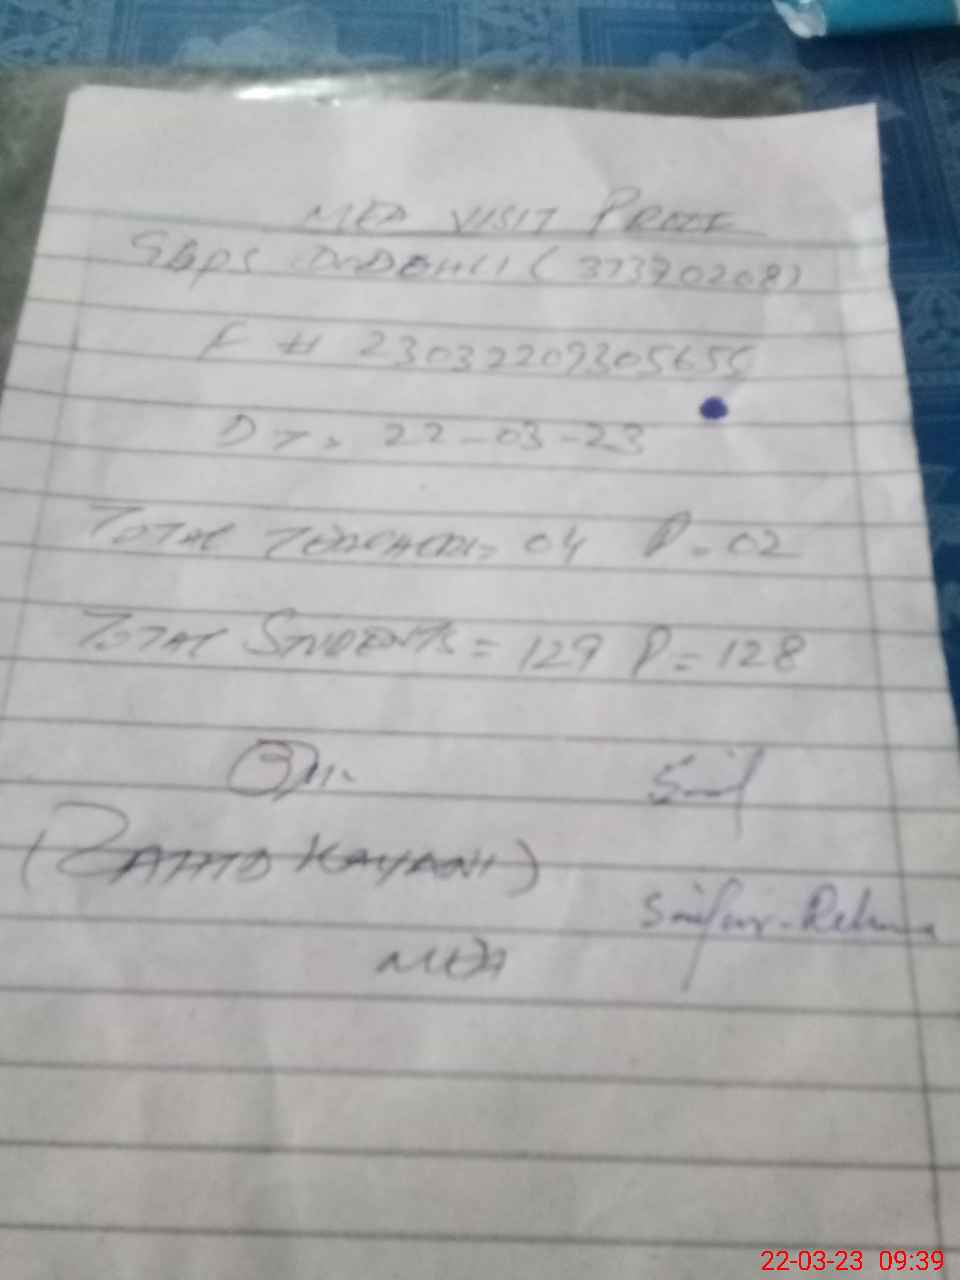 MEA VISIT PROOF
GBPS (37370208)
F # 23032209305655
DT: 22-03-23
TOTAL TEACHERS= 04 P=02
TOTAL STUDENTS= 129 P=128
Saif
(ZAHID KAYANI)
Saifur-Rehman
MEA
22-03-23 09:39